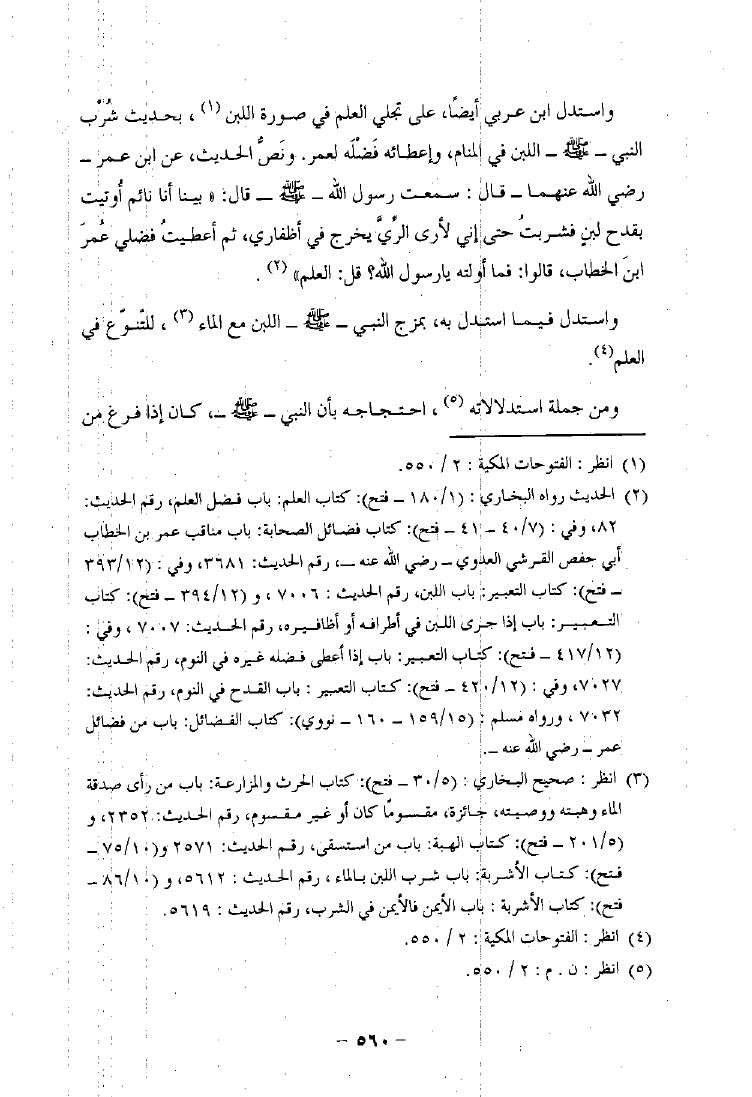 واستدل ابن عربي أيضًا، على تجلي العلم في صورة اللبن (١) ، بحديث شُرْب
النبي ـ ﷺ ـ اللبن في المنام، وإعطائه فَضْلَه لعمر. ونَصُّ الحديث، عن ابن عمر ـ
رضي الله عنهما ـ قال : سمعت رسول الله ـ ﷺ ـ قال: « بينا أنا نائم أُوتيت
بقدح لبنٍ فشربتُ حتى إني لأرى الرِّيَّ يخرج في أظفاري، ثم أعطيتُ فضلي عُمرَ
ابنَ الخطاب، قالوا: فما أولته يارسول الله؟ قل: العلم» (٢) .
واستدل فيما استدل به، بمزج النبي ـ ﷺ ـ اللبن مع الماء (٣) ، للتّنوّع في
العلم(٤).
ومن جملة استدلالاته (٥) ، احتجاجه بأن النبي ـ ﷺ ـ، كان إذا فرغ من
(١) انظر : الفتوحات المكية : ٢ / ٥٥٠.
(٢) الحديث رواه البخاري : (١/ ١٨٠ ـ فتح): كتاب العلم: باب فضل العلم، رقم الحديث:
٨٢، وفي : (٧/ ٤٠ ـ ٤١ ـ فتح): كتاب فضائل الصحابة: باب مناقب عمر بن الخطاب
أبي حفص القرشي العدوي ـ رضي الله عنه ـ، رقم الحديث: ٣٦٨١، وفي : (١٢/ ٣٩٣
ـ فتح): كتاب التعبير: باب اللبن، رقم الحديث : ٧٠٠٦ ، و (١٢/ ٣٩٤ ـ فتح): كتاب
التعبير: باب إذا جرى اللبن في أطرافه أو أظافيره، رقم الحديث: ٧٠٠٧ ، وفي :
(١٢/ ٤١٧ ـ فتح): كتاب التعبير: باب إذا أعطى فضله غيره في النوم، رقم الحديث:
٧٠٢٧، وفي : (١٢/ ٤٢٠ ـ فتح): كتاب التعبير : باب القدح في النوم، رقم الحديث:
٧٠٣٢ ، ورواه مسلم : (١٥/ ١٥٩ ـ ١٦٠ ـ نووي): كتاب الفضائل: باب من فضائل
عمر ـ رضي الله عنه ـ.
(٣) انظر : صحيح البخاري : (٥/ ٣٠ ـ فتح): كتاب الحرث والمزارعة: باب من رأى صدقة
الماء وهبته ووصيته، جائزة، مقسومًا كان أو غير مقسوم، رقم الحديث: ٢٣٥٢، و
(٥/ ٢٠١ ـ فتح): كتاب الهبة: باب من استسقى، رقم الحديث: ٢٥٧١ و(١٠/ ٧٥ ـ
فتح): كتاب الأشربة: باب شرب اللبن بالماء ، رقم الحديث : ٥٦١٢، و (١٠/ ٨٦ ـ
فتح): كتاب الأشربة : باب الأيمن فالأيمن في الشرب، رقم الحديث : ٥٦١٩.
(٤) انظر : الفتوحات المكية : ٢ / ٥٥٠.
(٥) انظر : ن . م : ٢ / ٥٥٠.
ـ ٥٦٠ ـ